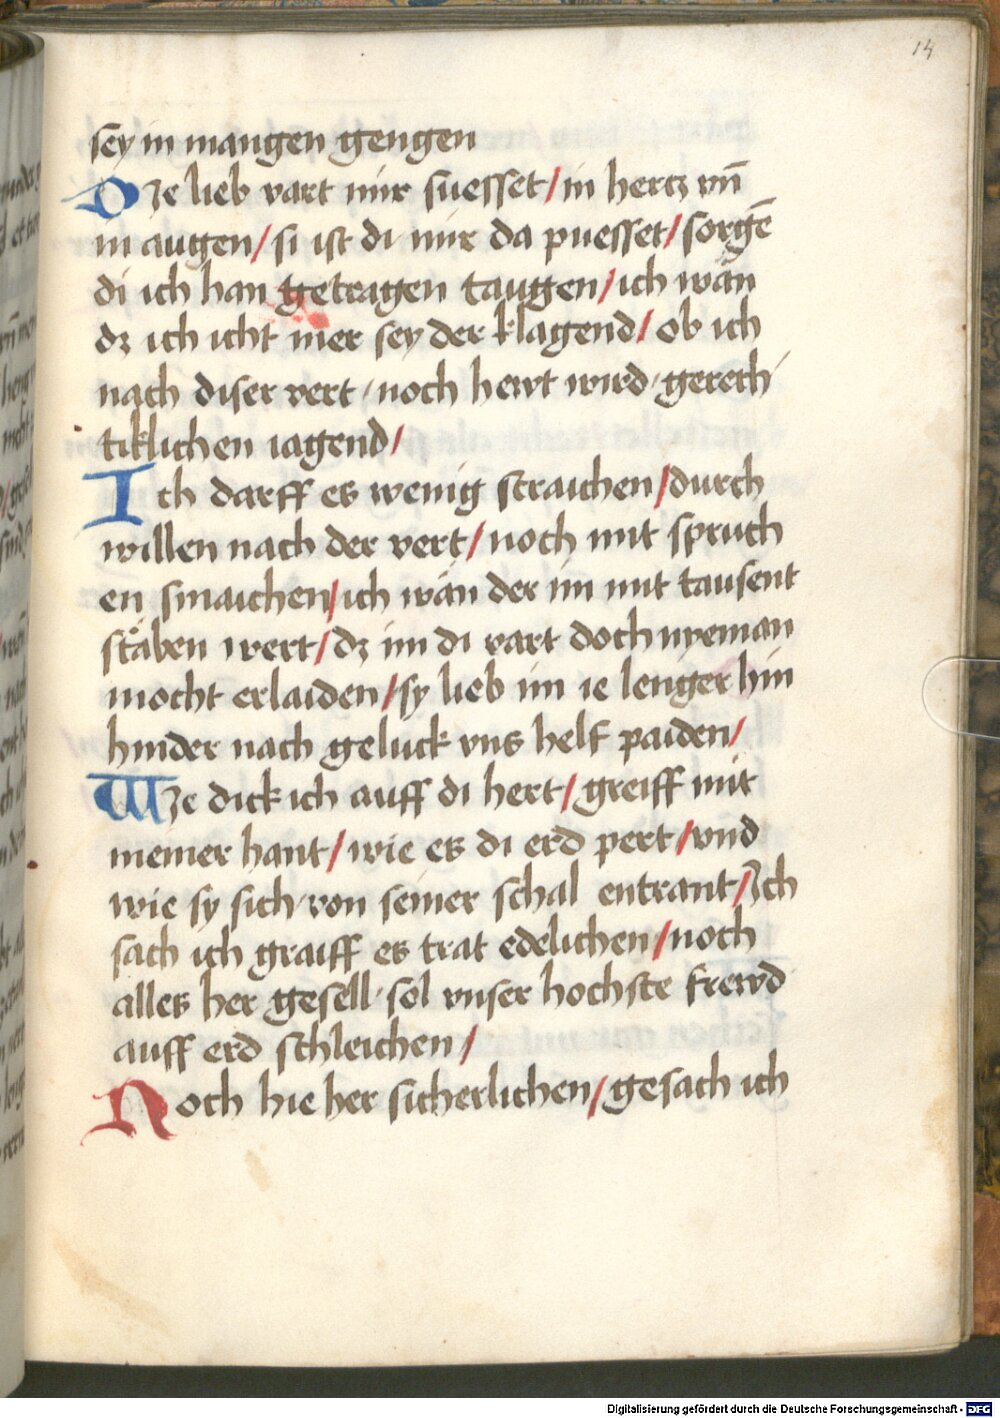 14
sey in mangen gengen
Die lieb vart mir suesset/in hertz vn̄
in augen/si ist di mir da puesset/sorgē
di ich han getragen taugen/ich wän
dz ich icht mer sey der klagend/ob ich
nach diser vert/noch hewt wird gerech
tiklichen iagend/
Ich darff es wenig straichen/durch
willen nach der vert/noch mit spruch
en smaichen/ich wän der im mit tausent
stäben wert/dz im di vart doch nyeman
mocht erlaiden/sy lieb im ie lenger hin
hinder nach geluck vns helf paiden/
Wie dick ich auff di hert/greiff mit
meiner hant/wie es di erd pert/vnd
wie sy sich von seiner schal entrant/Ich
sach ich graiff es trat edelichen/noch
alles her gesell sol vnser hochste frewd
auff erd schleichen/
Noch hie her sicherlichen/gesach ich
Digitalisierung gefördert durch die Deutsche Forschungsgemeinschaft - DFG